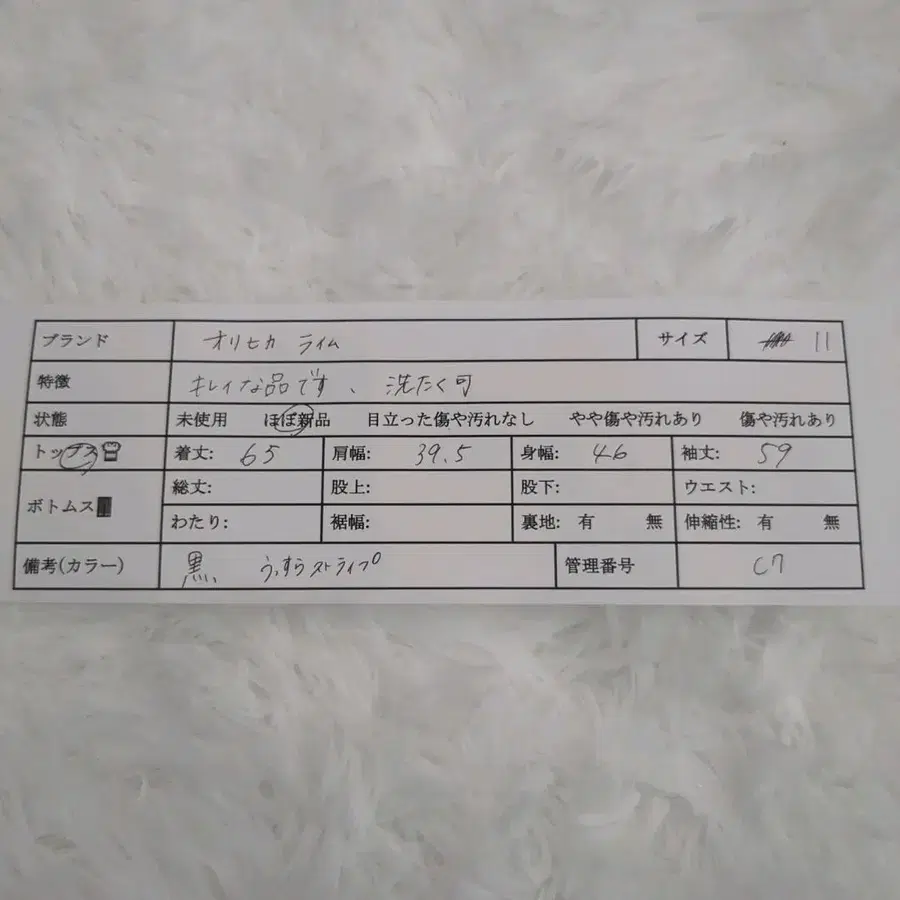 ブランド オリヒカ ライム サイズ 11
特徴 キレイな品です、洗たく可
状態 未使用 ほぼ新品 目立った傷や汚れなし やや傷や汚れあり 傷や汚れあり
トップス 着丈: 65 肩幅: 39.5 身幅: 46 袖丈: 59
ボトムス 総丈: 股上: 股下: ウエスト:
わたり: 裾幅: 裏地: 有 無 伸縮性: 有 無
備考(カラー) 黒、うっすらストライプ 管理番号 C7